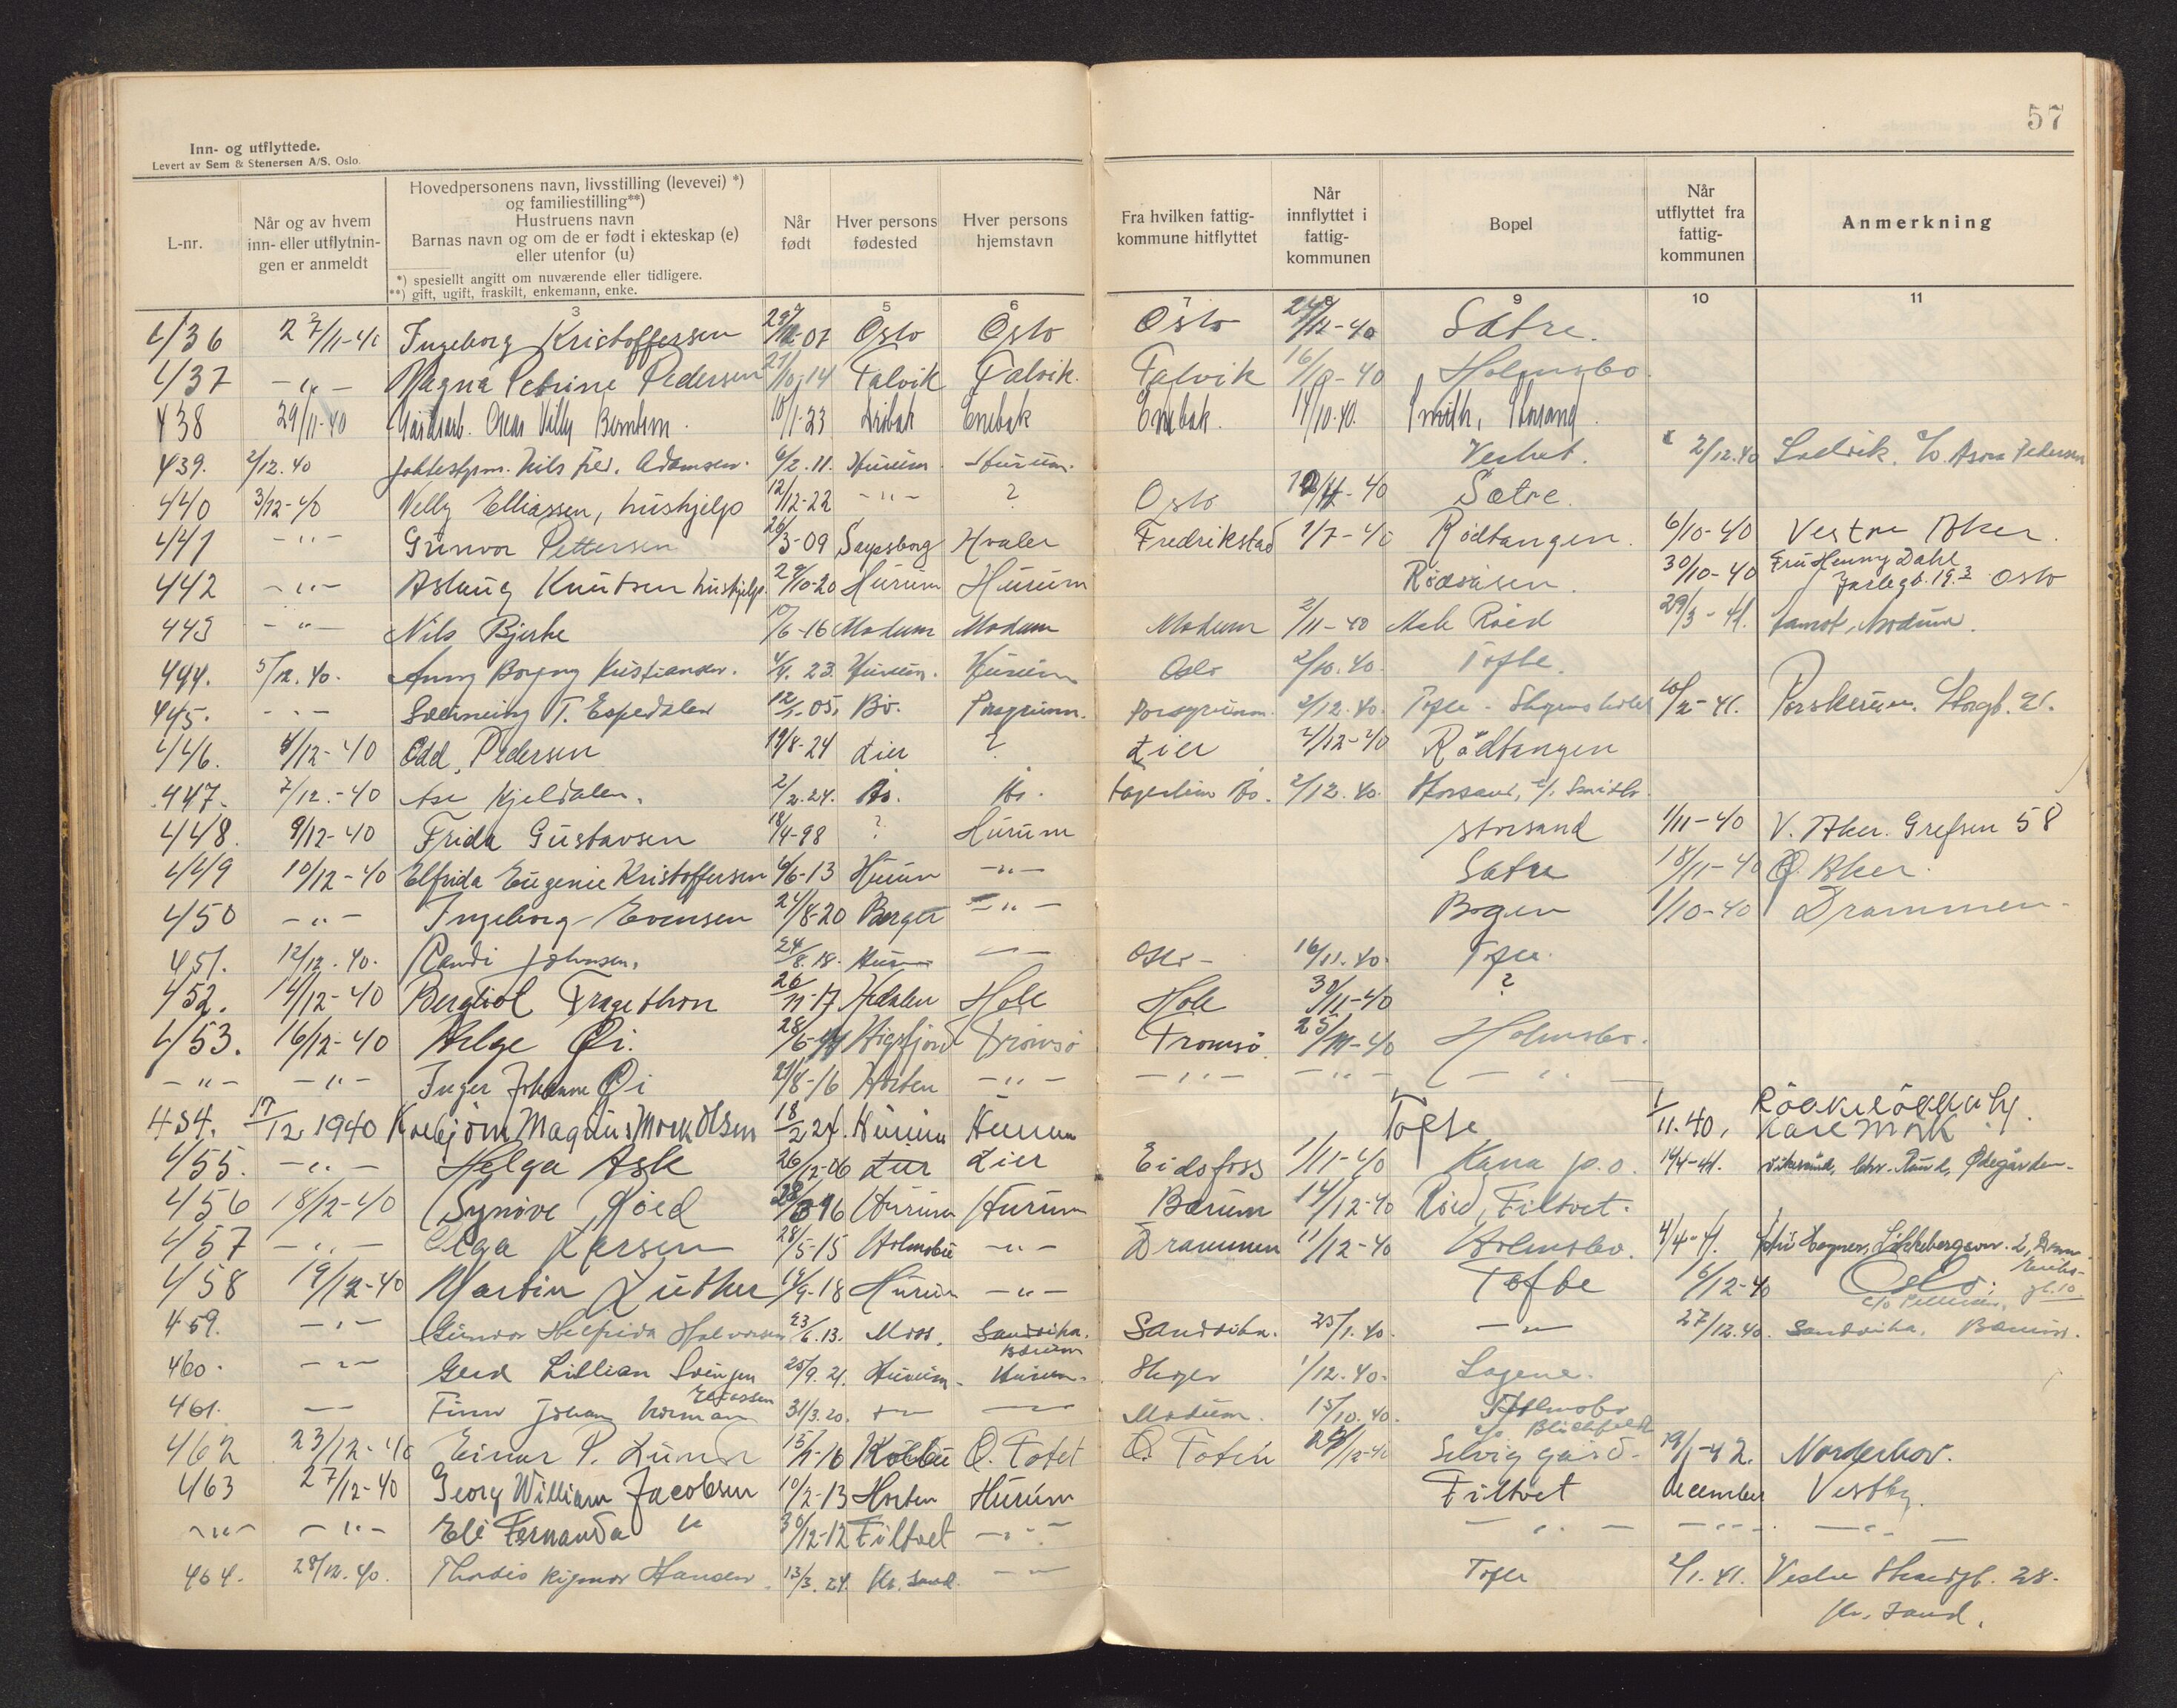 57
Inn- og utflyttede.
Levert av Sem & Stenersen A/S. Oslo.
L-nr.
Når og av hvem inn- eller utflytnin-gen er anmeldt
Hovedpersonens navn, livsstilling (levevei) *)
og familiestilling**)
Hustruens navn
Barnas navn og om de er født i ekteskap (e)
eller utenfor (u)
*) spesiellt angitt om nuværende eller tidligere.
**) gift, ugift, fraskilt, enkemann, enke.
Når født
Hver persons fødested
Hver persons hjemstavn
Fra hvilken fattig-kommune hitflyttet
Når innflyttet i fattig-kommunen
Bopel
Når utflyttet fra fattig-kommunen
Anmerkning
2 3 4 5 6 7 8 9 10 11
436 27/11-40 Ingeborg Kristoffersen -07 Oslo Oslo Oslo 24/11-40 Sætre.
437 -"- Magna Petrine Pedersen 27/10-14 Talvik Talvik. Talvik 16/9-40 Holmsbo.
438 29/11-40 Gårdsarb. Oscar Villy Berntsen. 10/1-23 Drøbak Enebak Enebak. 14/10.40. Smith, Storsand.
439. 2/12.40 Nils Fred. Adamsen. 6/2.11. Hurum. Hurum. Verket. 2/12.40 c/o. Pedersen
440 3/12-40 Nelly Elliassen, hushjelp 12/12-22 -"- ? Oslo -40 Sætre.
441 -"- Gunvor Pettersen 26/3-09 Sarpsborg Hvaler Fredrikstad 1/7-40 Rødtangen. 6/10-40 Vestre Aker.
442 -"- Aslaug Knutsen hushjelp. 29/10-20 Hurum Hurum 30/10-40 Fru Henny Dahl
Jarlegt. 19.3 Oslo
443 -"- Nils Bjerke /6-16 Modum Modum Modum 2/11-40 Røed 29/3-41. Åmot, Modum.
444. 5/12.40. Anny Borgny Kristiansen. 4/4. 23. Hurum. Hurum Oslo 2/10.40. Tofte.
445. -"- T. Espedalen 12/1-05. Bø. Porsgrunn. Porsgrunn. 2/12.40. Tofte - 10/2-41. Storgt. 21.
446. 4/12-40 Odd Pedersen 19/8-24 Lier ? Lier 2/12-40 Rødtangen
447. 7/12.-40 Åse Kjeldalen. 2/2.24. Bø. Bø. Bø. 2/12.40. Storsand, c/o Smith.
448. 9/12-40 Frida Gustavsen 18/4-98 ? Hurum Storsand 1/11-40 V. Aker. Grefsen 58
449 10/12-40 Elfrida Eugenie Kristoffersen 6/6-13 Hurum -"- Sætre 18/11-40 Ø. Aker.
450 -"- Ingeborg Evensen 24/8-20 Berger -"- Bogen 1/10-40 Drammen-
451. 12/12.40. Randi Johnsen. 24/8.18. Hurum -"- Oslo- 16/11.40. Tofte.
452. 14/12-40 Bergliot Tragethon 26/11-17 Hedalen Hole Hole 30/11-40 ?
453. 16/12-40 Helge Øi. 28/6- Tromsø Tromsø. 25/ -40 Holmsbo.
-"- -"- Inger Johanne Øi 21/8-16 Horten -"- -"- -"- -"-
454. 17/12 1940 Magnus Mørk Olsen 18/2 24. Hurum Hurum Tofte 1/11.40.
Kåre Mørk
455. -"- Helga Ask 26/12-06 Lier Lier Eidsfoss 1/11-40 Kana p.o. 14/4-41. Ødegården-
456 18/12-40 Synøve Røed 28/3 16 Hurum Hurum Bærum 14/12-40 Røed, Filtvet.
457 -"- Olga Larsen 28/5-15 Holmsbu -"- Drammen 11/12-40 Holmsbo. 4/4-41. Dram.
458 19/12-40 Martin Luther 14/9-18 Hurum -"- Tofte 6/12-40 Oslo.
459. -"- Gunvor Helfrida Halvorsen 23/6.13. Moss. Sandvika. Sandvika. 25/1.40. -"- 27/12.40. Sandvika, Bærum.
Bærum
460. -"- Gerd Lillian Svingen 25/9.21. Hurum. Hurum. Skoger 1/12.40.
461. -"- Finn Johan Norman Eliassen 31/3.20. -"- -"- Modum. 15/10.40. Holmsbo
c/o Blichfeldt
462 23/12-40 Einar P. Lund 15/ -16 Kolbu Ø. Toten Ø. Toten /12-40 Selvig gård- 19/1-42. Norderhov.
463 27/12-40 Georg William Jacobsen 10/2-13 Horten Hurum Filtvet December Vestby.
-"- -"- Eli Fernanda " 30/12-12 Filtvet -"- -"- -"- -"-
464. 28/12.40. Thordis Rigmor Hansen. 13/3.24. Kr. Sand. -"- Tofte 2/1.41. Vestre Strandgt. 28.
Kr. Sand.